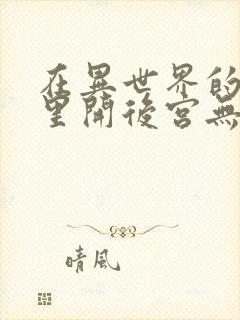 在異世界的
里開後宮無
晴風